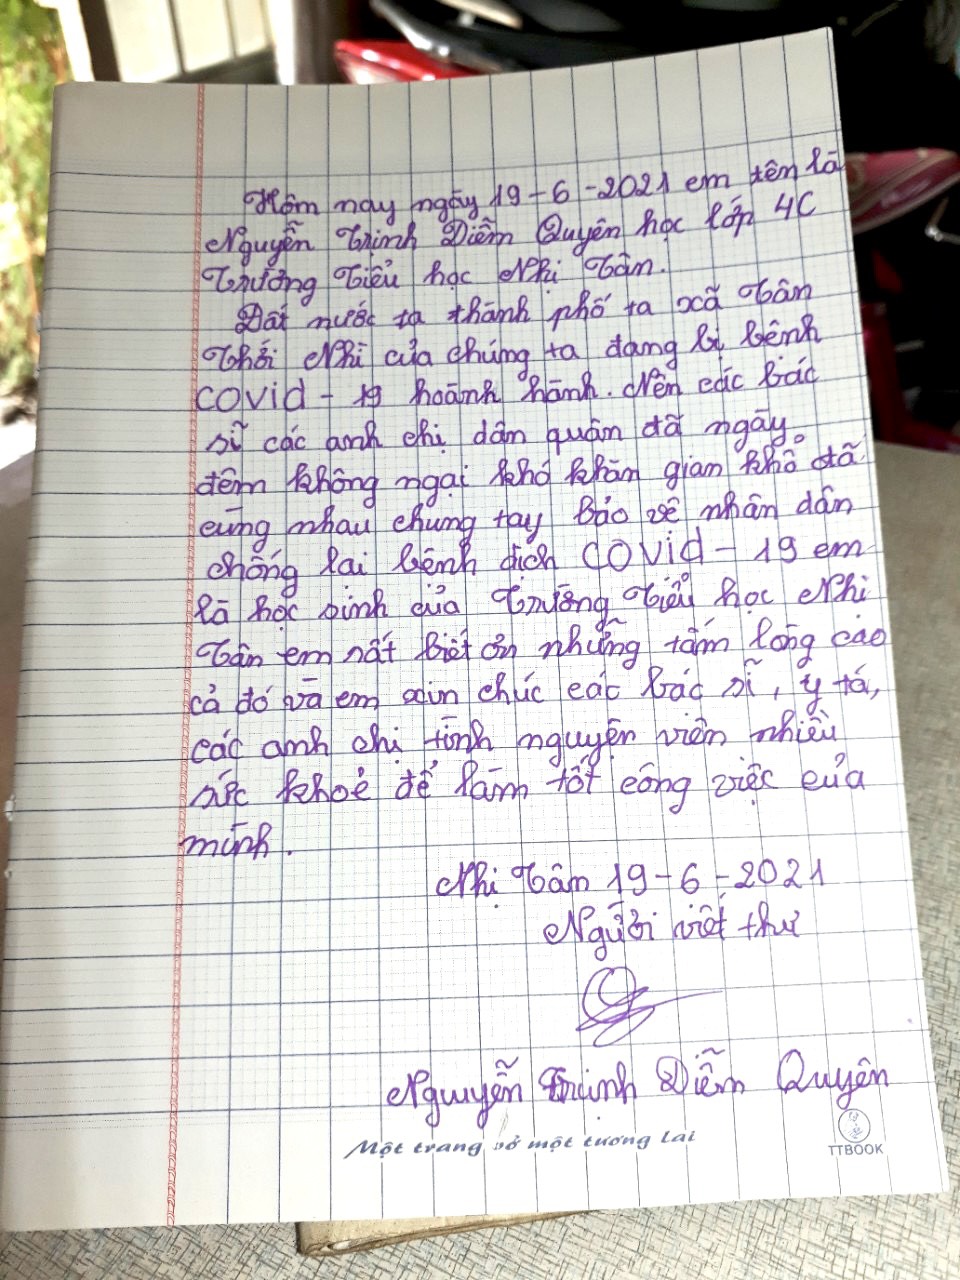 Hôm nay ngày 19-6-2021 em tên là
Nguyễn Trịnh Diễm Quyên học lớp 4C
Trường Tiểu học Nhị Tân.
Đất nước ta thành phố ta xã Tân
Thới Nhì của chúng ta đang bị bệnh
COVid-19 hoành hành. Nên các bác
sĩ các anh chị dân quân đã ngày
đêm không ngại khó khăn gian khổ đã
cùng nhau chung tay bảo vệ nhân dân
chống lại bệnh dịch COVid-19 em
là học sinh của Trường Tiểu học Nhi
Tân em rất biết ơn những tấm lòng cao
cả đó và em xin chúc các bác sĩ, y tá,
các anh chị tình nguyện viên nhiều
sức khoẻ để làm tốt công việc của
mình.
Nhị Tân 19-6-2021
Người viết thư
Nguyễn Trịnh Diễm Quyên
Một trang vở một tương lai
TTBOOK